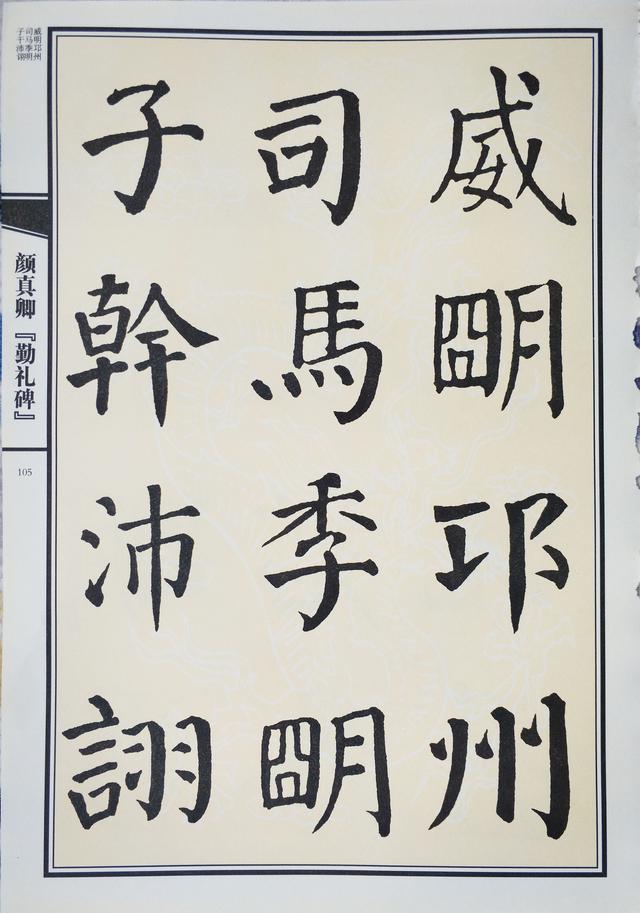 威朙邛州
司馬季朙
子幹沛詡
威明邛州
司马季明
子干沛诩
颜真卿『勤礼碑』
105